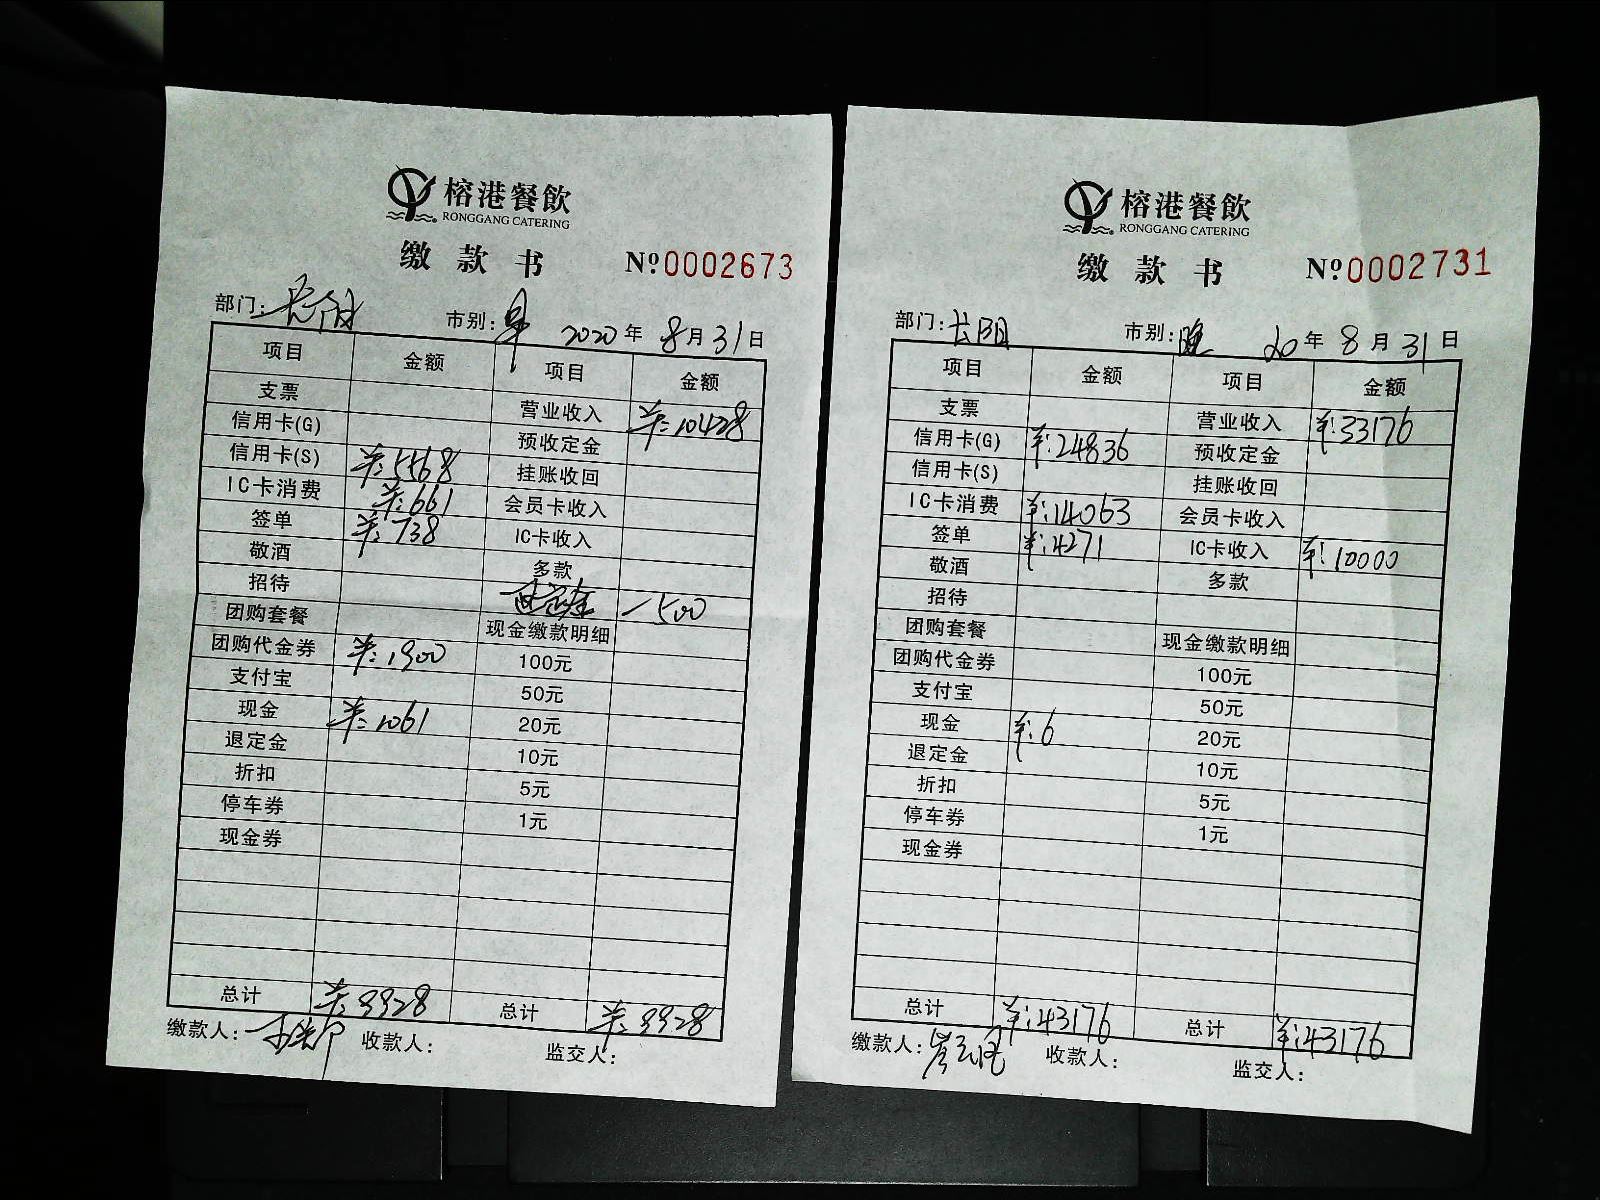 榕港餐飲
RONGGANG CATERING
缴款书 Nº0002673
部门: 长阳 市别: 早 2020年 8月31日
项目 金额 项目 金额
支票 营业收入 ¥:10428
信用卡(G) 预收定金
信用卡(S) ¥:5568 挂账收回
IC卡消费 ¥:661 会员卡收入
签单 ¥:738 IC卡收入
敬酒 多款
招待 退定金 -500
团购套餐 现金缴款明细
团购代金券 ¥:1900 100元
支付宝 50元
现金 ¥:1061 20元
退定金 10元
折扣 5元
停车券 1元
现金券
总计 ¥:9928 总计 ¥:9928
缴款人: 收款人: 监交人:
榕港餐飲
RONGGANG CATERING
缴款书 Nº0002731
部门: 长阳 市别: 晚 20年 8月31日
项目 金额 项目 金额
支票 营业收入 ¥:33176
信用卡(G) ¥:24836 预收定金
信用卡(S) 挂账收回
IC卡消费 ¥:14063 会员卡收入
签单 ¥:4271 IC卡收入 ¥:10000
敬酒 多款
招待
团购套餐 现金缴款明细
团购代金券 100元
支付宝 50元
现金 ¥:6 20元
退定金 10元
折扣 5元
停车券 1元
现金券
总计 ¥:43176 总计 ¥:43176
缴款人: 收款人: 监交人: